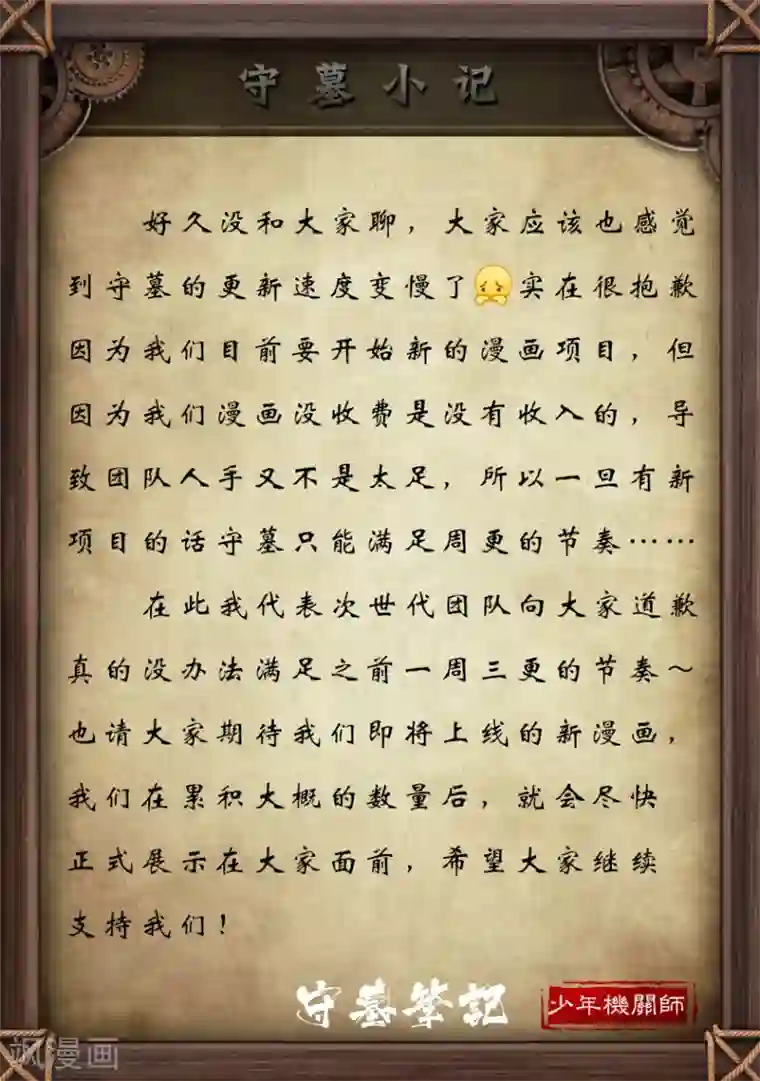 守墓小记
好久没和大家聊，大家应该也感觉
到守墓的更新速度变慢了实在很抱歉
因为我们目前要开始新的漫画项目，但
因为我们漫画没收费是没有收入的，导
致团队人手又不是太足，所以一旦有新
项目的话守墓只能满足周更的节奏……
在此我代表次世代团队向大家道歉
真的没办法满足之前一周三更的节奏～
也请大家期待我们即将上线的新漫画，
我们在累积大概的数量后，就会尽快
正式展示在大家面前，希望大家继续
支持我们！
守墓筆記
少年機關師
飒漫画